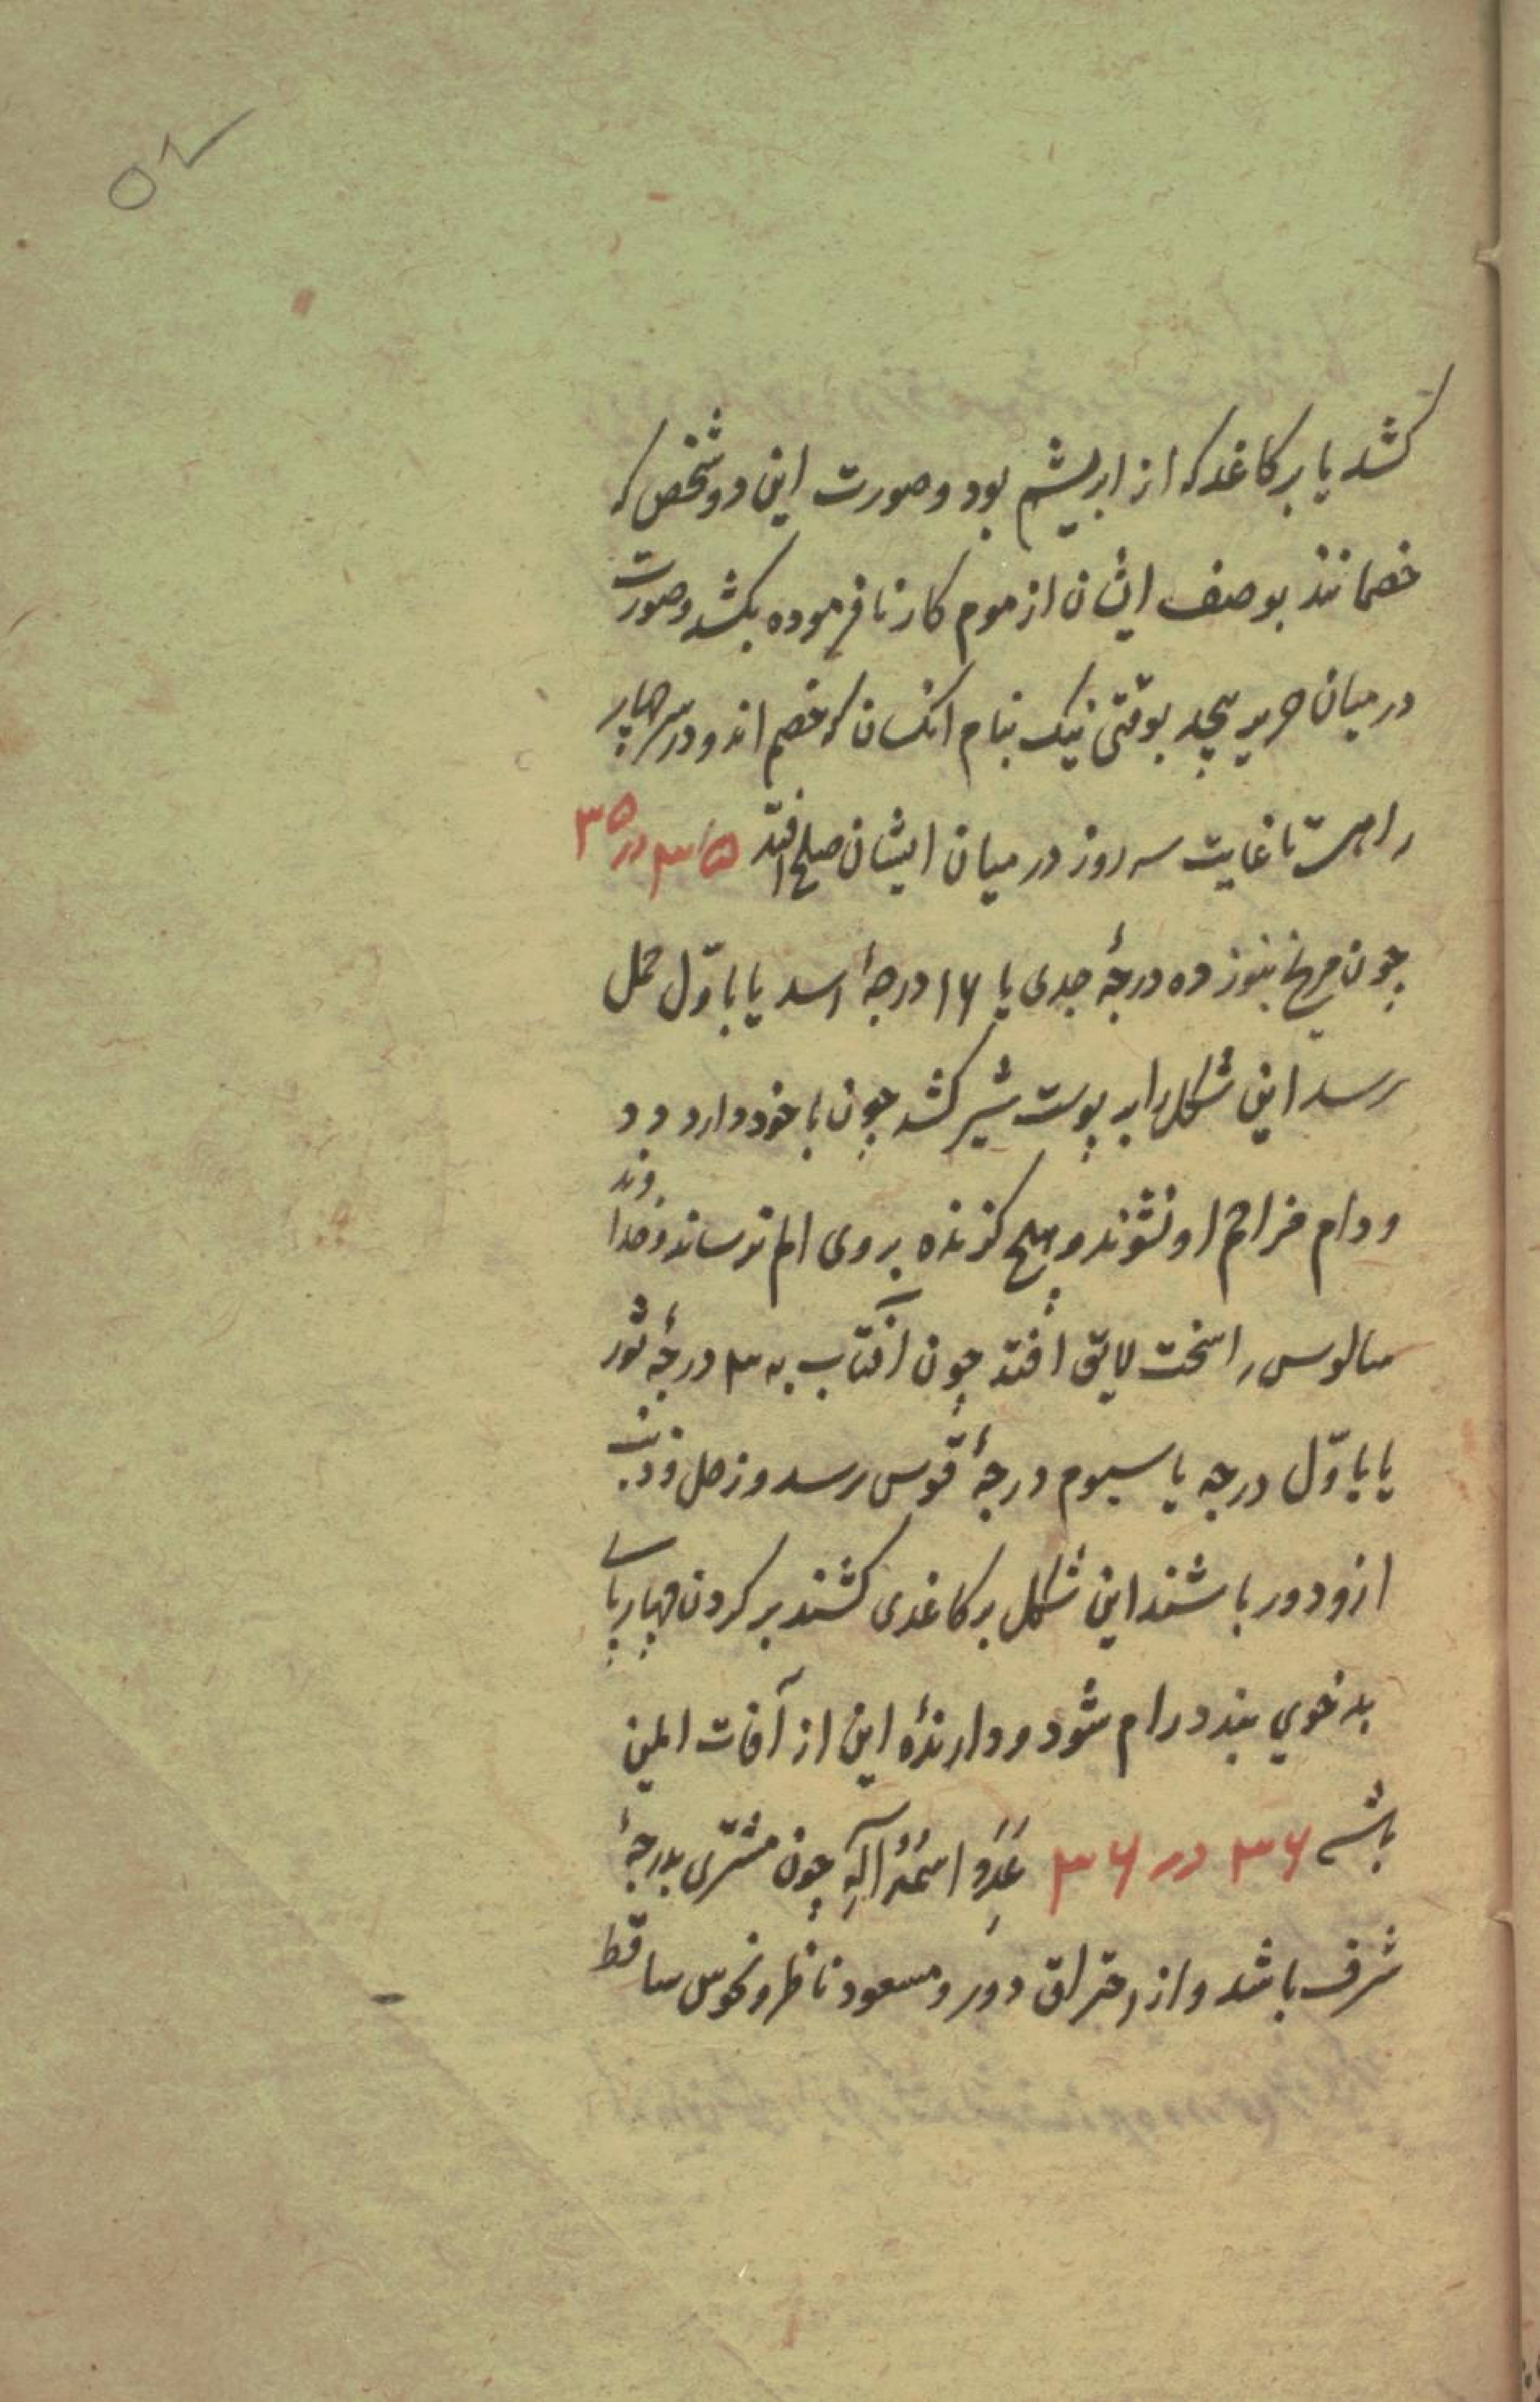 کشد یا بر کاغد که از ابریشم بود و صورت این دو شخص که
خصمانند بوصف ایشان از موم کار نافرموده بکشد و صورت
در میان حریر پیچد بوقتی نیک بنام انکسان که خصم اند و در سر چهار
راه تا غایت سه روز در میان ایشان صلح افتد ۳۵ در ۳۵
چون مریخ بنوزده درجۀ جدی یا ۱۶ درجۀ اسد یا باوّل حمل
رسد این شکل را بر پوست شیر کشد چون با خود دارد دد
و دام مزاحم او نشوند و هیچ کزنده بروی الم نرساند و خداوند
سالوس را سخت لایق افتد چون آفتاب به ۳ درجۀ ثور
یا باوّل درجه یا سیوم درجۀ قوس رسد و زحل و ذنب
ازو دور باشند این شکل بر کاغدی کشند بر کردن چهارپای
بدخوي بندد رام شود و دارندۀ این از آفات ایمن
باشد ۳۶ در ۳۶ چون مشتری بدرجۀ
شرف باشد و از احتراق دور و مسعود ناظر و نحوس ساقط